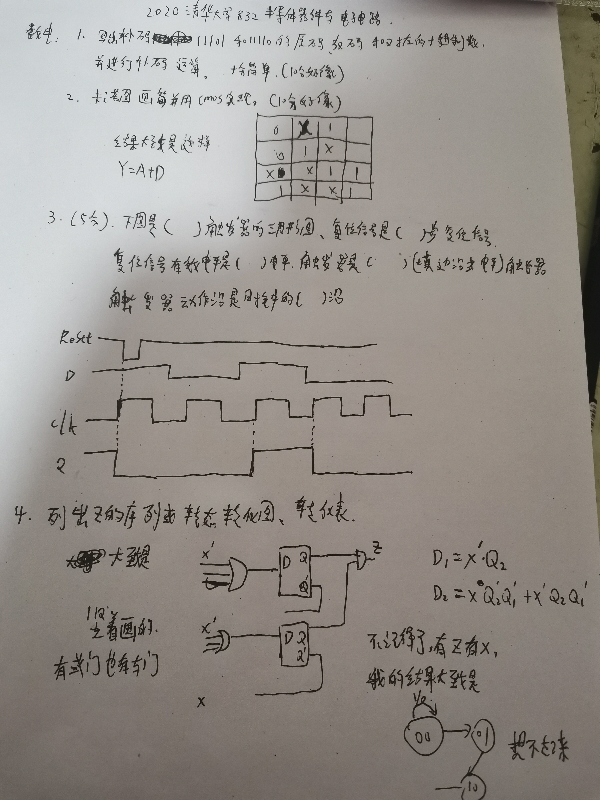 2020清华大学832半导体器件与电子电路.
数电: 1. 写出补码 11101 401110的原码,反码和对应的十进制数.
并进行补码运算, 十分简单.(10分好像)
2. 卡诺图画简并用cmos实现。(10分好像)
结果大致是这样
Y=A+D
0 X 1
0 1 X
X X 1 1
1 X X 1
3. (5分). 下图是( )触发器的工作图、复位信号是( )步复位信号
复位信号有效电平是( )电平. 触发器是( )(填边沿或电平)触发器
触发器动作沿是时钟的( )沿
Reset
D
clk
Q
4. 列出Z的序列或状态转化图、转化表.
大致是
X'
D Q
Q'
Z
D₁=X'·Q₂
D₂=X Q₂'Q₁'+X'Q₂Q₁'
X'
D Q
Q'
X
着画的.
有或门也有与门
不记得了,有Z有X,
我的结果大致是
00
01
10
想不起来